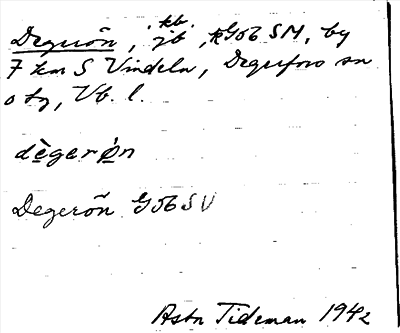 kb.
Degerön, jb, kGobSM, by
7 km S Vindeln, Degerfors sn
o tg, Vb. l.
dègerö̀n
Degerön GobSV
Asta Tideman 1942